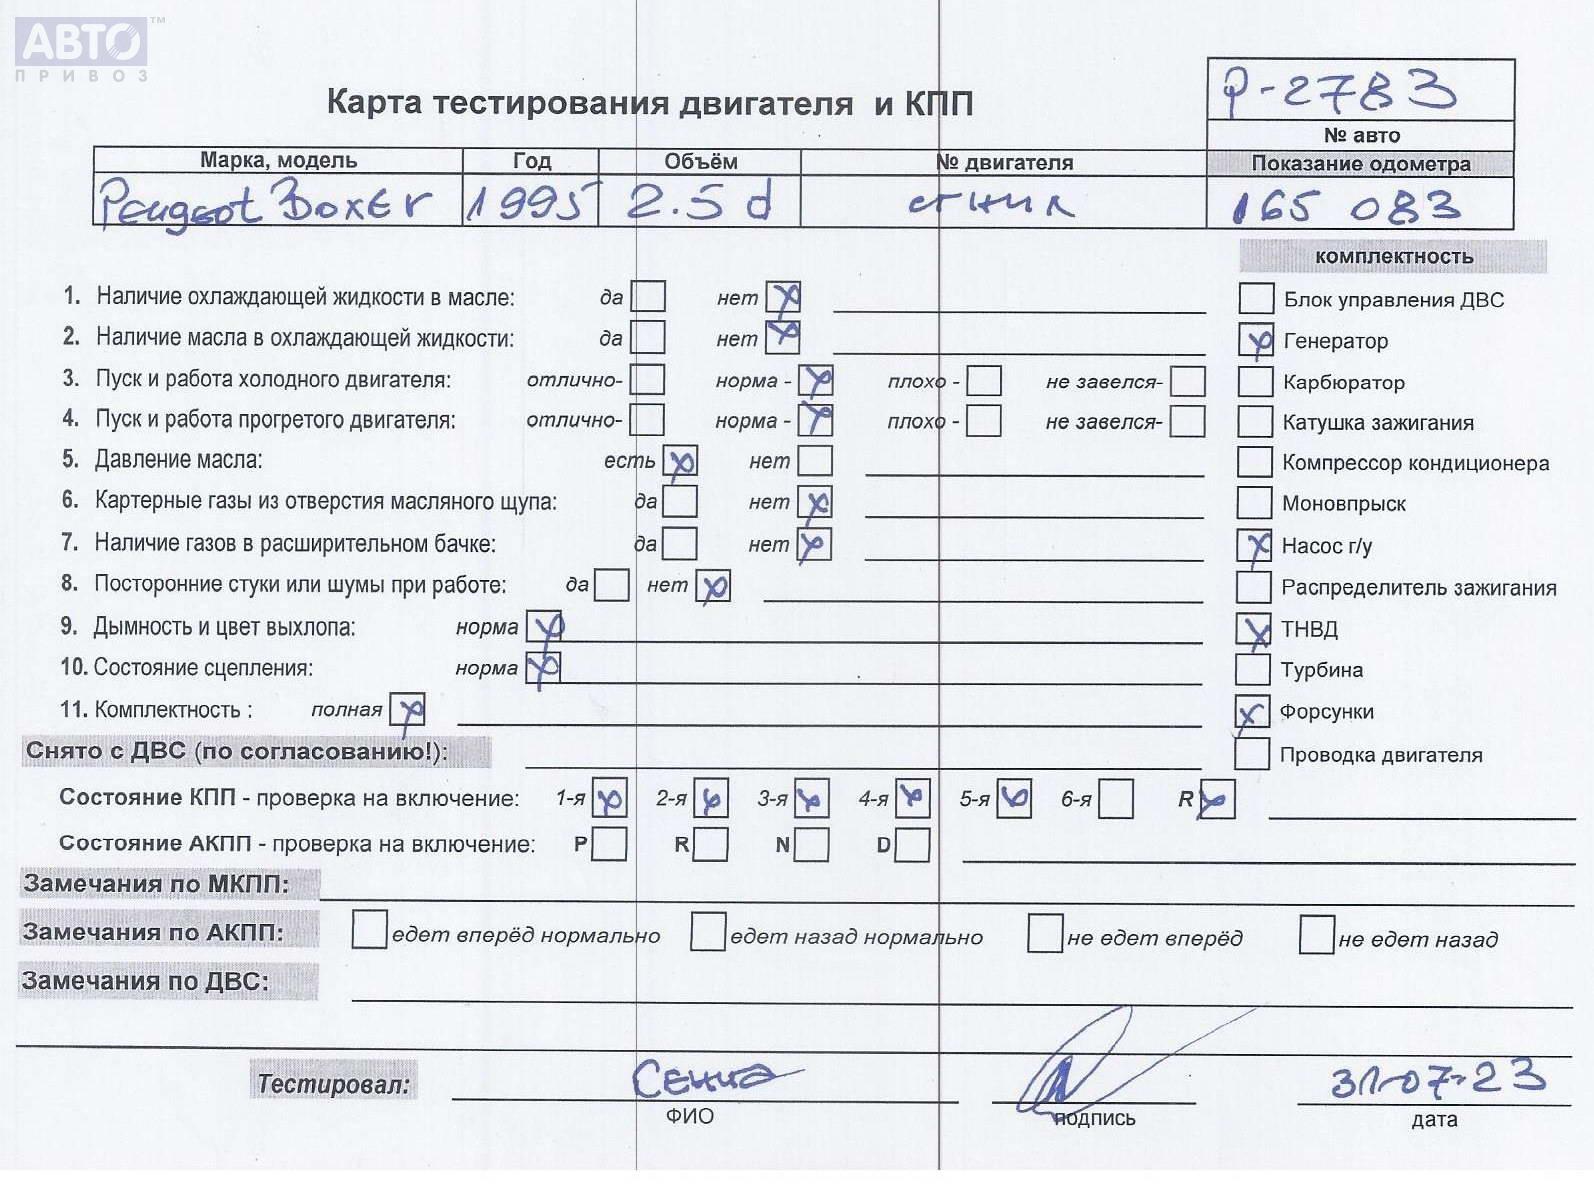 АВТО ™
ПРИВОЗ
Карта тестирования двигателя и КПП
P-2783
№ авто
Марка, модель Год Объём № двигателя Показание одометра
Peugeot Boxer 1995 2.5 d 165 083
комплектность
1. Наличие охлаждающей жидкости в масле: да нет x Блок управления ДВС
2. Наличие масла в охлаждающей жидкости: да нет x x Генератор
3. Пуск и работа холодного двигателя: отлично- норма - x плохо - не завелся- Карбюратор
4. Пуск и работа прогретого двигателя: отлично- норма - x плохо - не завелся- Катушка зажигания
5. Давление масла: есть x нет Компрессор кондиционера
6. Картерные газы из отверстия масляного щупа: да нет x Моновпрыск
7. Наличие газов в расширительном бачке: да нет x x Насос г/у
8. Посторонние стуки или шумы при работе: да нет x Распределитель зажигания
9. Дымность и цвет выхлопа: норма x x ТНВД
10. Состояние сцепления: норма x Турбина
11. Комплектность : полная x x Форсунки
Снято с ДВС (по согласованию!): Проводка двигателя
Состояние КПП - проверка на включение: 1-я x 2-я x 3-я x 4-я x 5-я x 6-я R x
Состояние АКПП - проверка на включение: P R N D
Замечания по МКПП:
Замечания по АКПП: едет вперёд нормально едет назад нормально не едет вперёд не едет назад
Замечания по ДВС:
Тестировал: 31-07-23
ФИО подпись дата